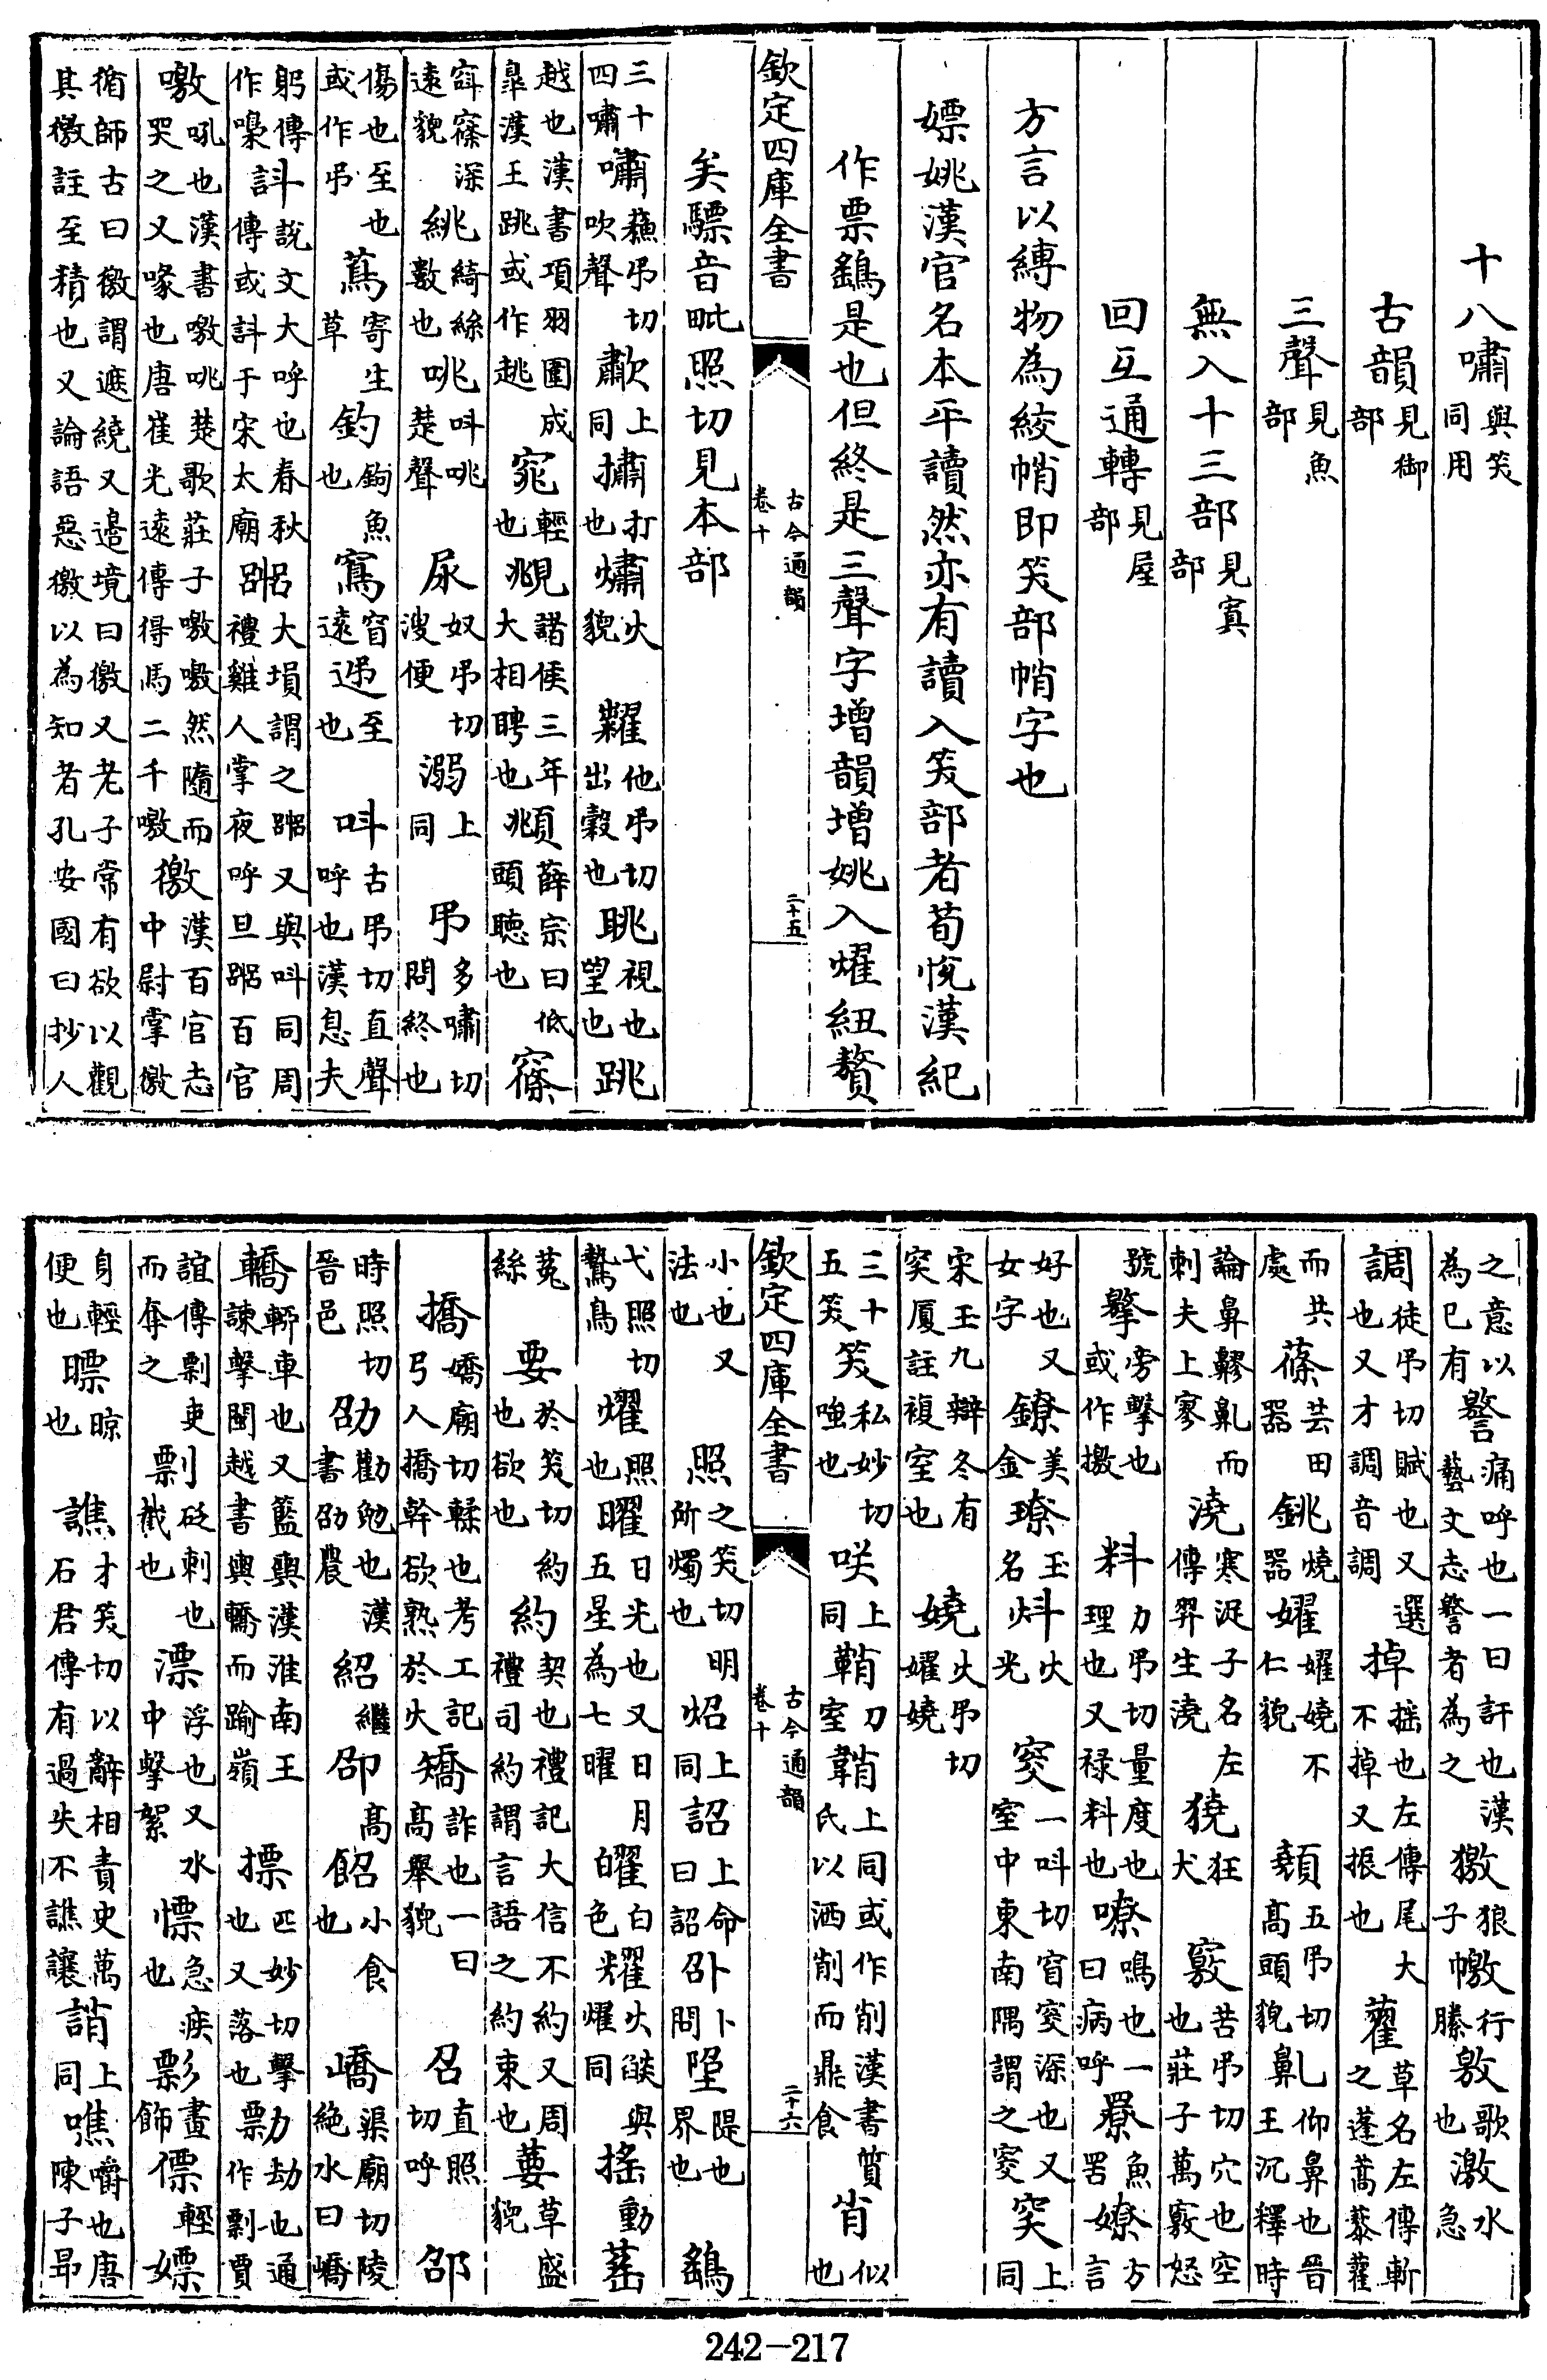 十八嘯與笑同用
古韻見御部
三聲見魚部
無入十三部見寘部
回互通轉見屋部
方言以縳物為絞帩即笑部帩字也
嫖姚漢官名本平讀然亦有讀入笑部者荀悅漢紀
作票鷂是也但終是三聲字增韻增姚入燿紐贅
欽定四庫全書 古今通韻 卷十 二十五
矣驃音毗照切見本部
三十四嘯嘯蘓弔切吹聲歗上同㩋打也熽火貌糶他弔切出穀也眺視也望也跳
越也漢書項羽圍成臯漢王跳或作趒窕輕也覜諸侯三年大相聘也頫薛宗曰低頭聽也窱
窲窱深遠貌絩綺絲數也咷叫咷楚聲尿奴弔切溲便溺上同弔多嘯切問終也
傷也至也或作吊蔦寄生草釣鉤魚也窵窅遠迅至也叫古弔切直聲呼也漢息夫
躬傳作嘄訆說文大呼也春秋傳或訆于宋太廟㗊大塤謂之㗊又與叫同周禮雞人掌夜呼旦㗊百官
噭吼也漢書噭咷楚歌莊子噭噭然隨而哭之又喙也唐崔光遠傳得馬二千噭徼漢百官志中尉掌徼
循師古曰徼謂遮繞又邊境曰徼又老子常有欲以觀其徼註至積也又論語惡徼以為知者孔安國曰抄人
之意以為已有警痛呼也一曰訐也漢藝文志警者為之獥狼子㡾行縢敫歌也激水急
調徒弔切賦也又選也又才調音調掉搖也左傳尾大不掉又振也藋草名左傳斬之蓬蒿藜藋
而共處蓧芸田器銚燒器嬥嬥嬈不仁貌顤五弔切高頭貌䶌仰鼻也晉王沉釋時
論鼻䶎䶌而刺夫上寥澆寒浞子名左傳羿生澆獟狂犬竅苦弔切穴也空也莊子萬竅怒
號擎旁擊也或作撽料力弔切量度也理也又祿料也嘹鳴也一曰病呼㙩魚罟嫽方言
好也又女字鐐美金璙玉名炓火光窔一叫切窅窔深也又室中東南隅謂之窔突上同
宋玉九辯冬有突厦註複室也嬈火弔切嬥嬈
三十五笑笑私妙切嗤也咲上同鞘刀室韒上同或作削漢書質氏以洒削而鼎食肖似也
欽定四庫全書 古今通韻 卷十 二十六
小也又法也照之笑切明所燭也炤上同詔上命曰詔卲卜問垗隄也界也鷂
弋照切鷙鳥燿照也曜日光也又日月五星為七曜皬白色耀火燄與燿同搖動葢
菟絲要於笑切約也欲也約契也禮記大信不約又周禮司約約謂言語之約約束也葽草盛貌
撟嬌廟切輮也考工記弓人撟幹欲熟於火矯詐也一曰高舉貌召直照切呼邵
時照切晉邑劭勸勉也漢書劭農紹繼卲高䬰小食也嶠渠廟切陵絕水曰嶠
轎轎車也又籃輿漢淮南王諫擊閩越書輿轎而踰嶺摽匹妙切擊也又落也勡劫也通作剽賈
誼傳剽吏而奪之剽砭刺也截也漂浮也又水中擊絮慓急疾也彯畫飾僄輕嫖
身輕便也㬓晾也譙才笑切以辭相責史萬石君傳有過失不譙讓誚上同噍嚼也唐陳子昂
242-217